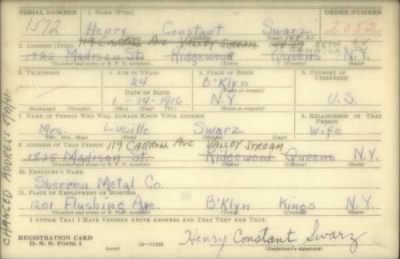 SERIAL NUMBER 1. NAME (Print) ORDER NUMBER
1572 Henry Constant Swarz 2052
119 CARROLL AVE VALLEY STREAM
2. ADDRESS (Print)
1825 Madison St. Ridgewood Queens N.Y.
3. TELEPHONE 4. AGE IN YEARS 5. PLACE OF BIRTH 6. COUNTRY OF CITIZENSHIP
24 B'klyn
DATE OF BIRTH
19-1916 N.Y. U.S.
7. NAME OF PERSON WHO WILL ALWAYS KNOW YOUR ADDRESS 8. RELATIONSHIP OF THAT PERSON
Mrs. Lucille Swarz Wife
9. ADDRESS OF THAT PERSON 119 CARROLL AVE VALLEY STREAM
1825 Madison St. Ridgewood Queens N.Y.
10. EMPLOYER'S NAME
Metal Co.
11. PLACE OF EMPLOYMENT OR BUSINESS
1201 Flushing Ave. B'klyn Kings N.Y.
I AFFIRM THAT I HAVE VERIFIED ABOVE ANSWERS AND THAT THEY ARE TRUE.
REGISTRATION CARD
D. S. S. Form 1 Henry Constant Swarz
(Registrant's signature)
CHANGED ADDRESS